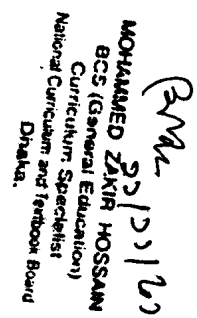 MOHAMMED ZAKIR HOSSAIN
BCS (General Education)
Curriculum Specialist
National Curriculum and Textbook Board
Dhaka.